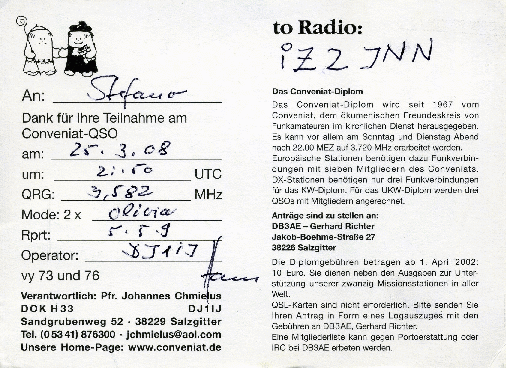 An: Stefano
Dank für Ihre Teilnahme am
Conveniat-QSO
am: 25.3.08
um: 21.50 UTC
QRG: 3,582 MHz
Mode: 2 x Olivia
Rprt: 5.5.9
Operator: DJ1IJ
vy 73 und 76
Verantwortlich: Pfr. Johannes Chmielus
DOK H33 DJ1IJ
Sandgrubenweg 52 · 38229 Salzgitter
Tel. (0 53 41) 876300 · jchmielus@aol.com
Unsere Home-Page: www.conveniat.de
to Radio:
IZ2JNN
Das Conveniat-Diplom
Das Conveniat-Diplom wird seit 1967 vom
Conveniat, dem ökumenischen Freundeskreis von
Funkamateuren im kirchlichen Dienst herausgegeben.
Es kann vor allem am Sonntag und Dienstag Abend
nach 22.00 MEZ auf 3.720 MHz erarbeitet werden.
Europäische Stationen benötigen dazu Funkverbin-
dungen mit sieben Mitgliedern des Conveniats.
DX-Stationen benötigen nur drei Funkverbindungen
für das KW-Diplom. Für das UKW-Diplom werden drei
QSOs mit Mitgliedern angerechnet.
Anträge sind zu stellen an:
DB3AE – Gerhard Richter
Jakob-Boehme-Straße 27
38226 Salzgitter
Die Diplomgebühren betragen ab 1. April 2002:
10 Euro. Sie dienen neben den Ausgaben zur Unter-
stützung unserer zwanzig Missionsstationen in aller
Welt.
QSL-Karten sind nicht erforderlich. Bitte senden Sie
Ihren Antrag in Form eines Logauszuges mit den
Gebühren an DB3AE, Gerhard Richter.
Eine Mitgliederliste kann gegen Portoerstattung oder
IRC bei DB3AE erbeten werden.